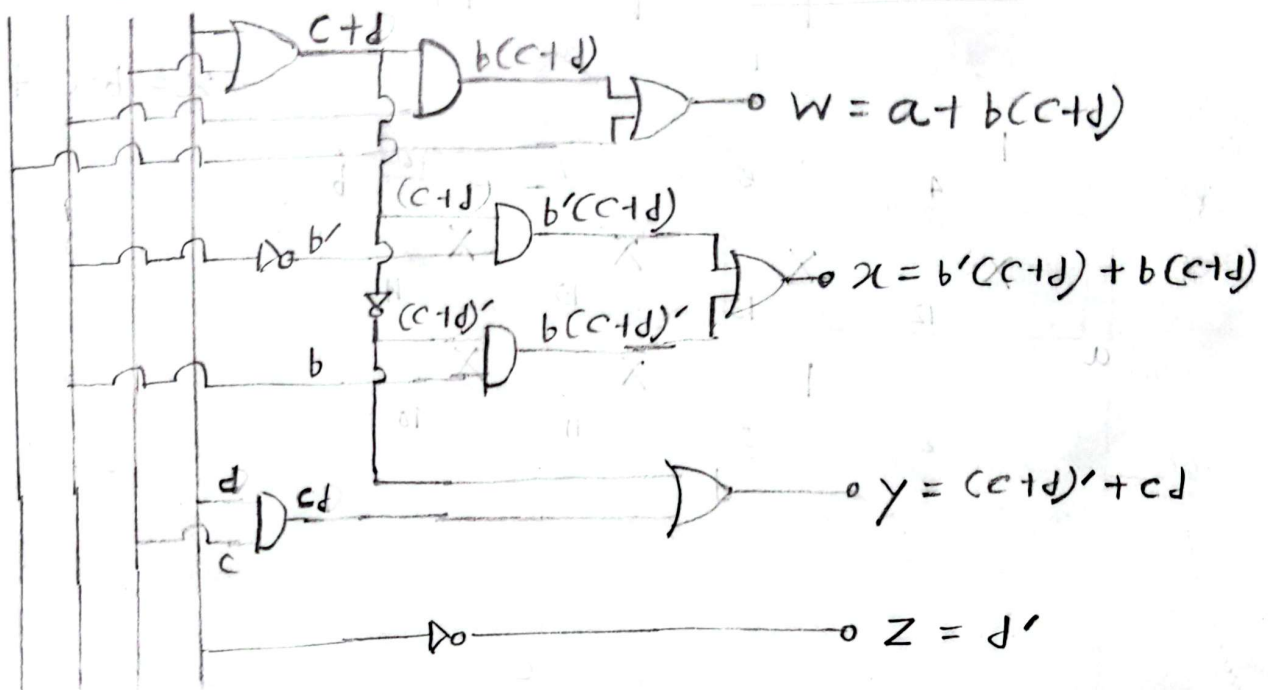 c+d
b(c+d)
W = a + b(c+d)
(c+d)
b'(c+d)
b'
x = b'(c+d) + b(c+d)
(c+d)'
b(c+d)'
b
d
cd
y = (c+d)' + cd
c
Z = d'